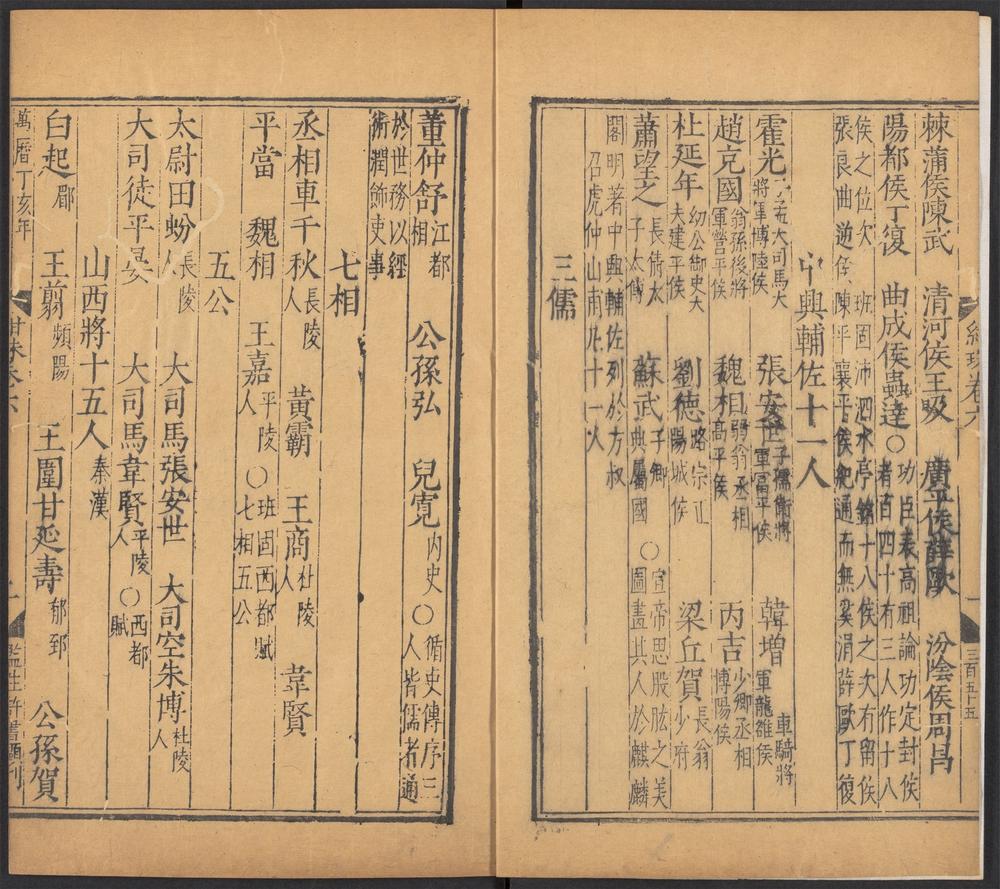 棘蒲侯陳武　清河侯王吸　廣平侯薛歐　汾陰侯周昌
陽都侯丁復　曲成侯蟲達○功臣表高祖論功定封侯
者百四十有三人作十八
侯之位次　班固沛泗水亭銘十八侯之次有留侯
張良曲逆侯陳平襄平侯紀通而無奚涓薛歐丁復
中興輔佐十一人
霍光　大司馬大
將軍博陸侯　張安世子孺衛將
軍富平侯　韓增　車騎將
軍龍雒侯
趙充國翁孫後將
軍營平侯　魏相弱翁丞相
高平侯　丙吉少卿丞相
博陽侯
杜延年　幼公御史大
夫建平侯　劉德路宗正
陽城侯　梁丘賀長翁
少府
蕭望之　長倩太
子太傅　蘇武子卿
典屬國　○宣帝思股肱之美
圖畫其人於麒麟
閣明著中興輔佐列於方叔
召虎仲山甫凡十一人
三儒
董仲舒江都
相　公孫弘　兒寬內史○循吏傳序三
人皆儒者通
於世務以經
術潤飾吏事
七相
丞相車千秋長陵
人　黃霸　王商杜陵
人　韋賢
平當　魏相　王嘉平陵
人　○班固西都賦
七相五公
五公
太尉田蚡長陵
人　大司馬張安世　大司空朱博杜陵
人
大司徒平晏　大司馬韋賢平陵
人　○西都
賦
山西將十五人秦漢
白起郿　王翦頻陽　王圍甘延壽郁郅　公孫賀
萬曆丁亥年
三百五十五